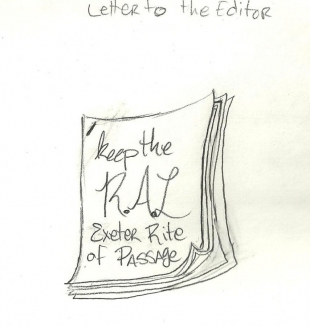 Letter to the Editor
keep the
R.A.L
Exeter Rite
of Passage